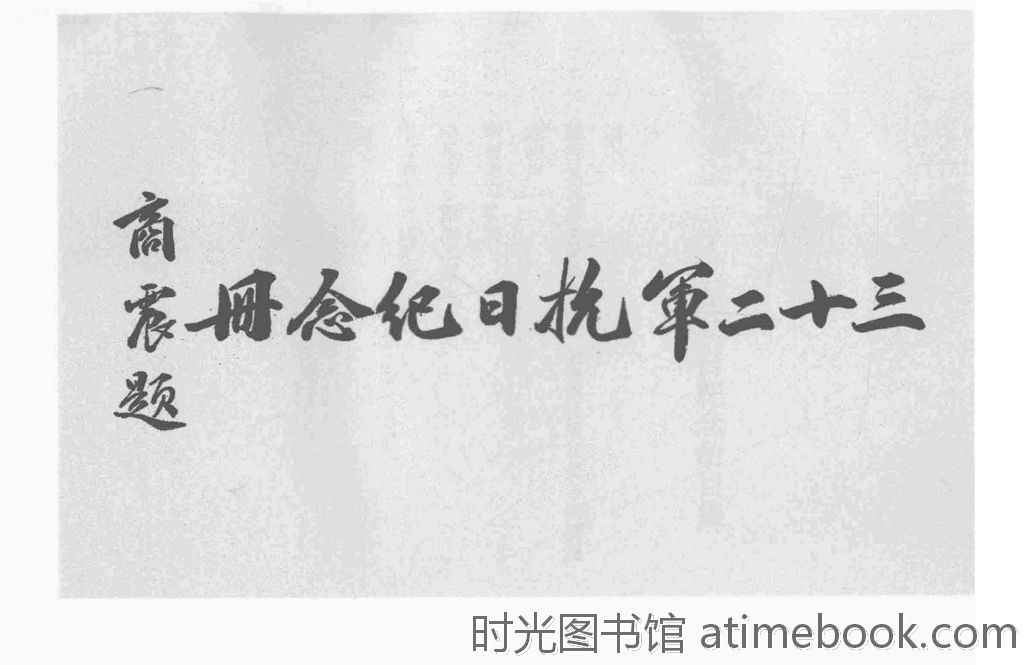 三十二軍抗日紀念冊
商震題
时光图书馆 atimebook.com